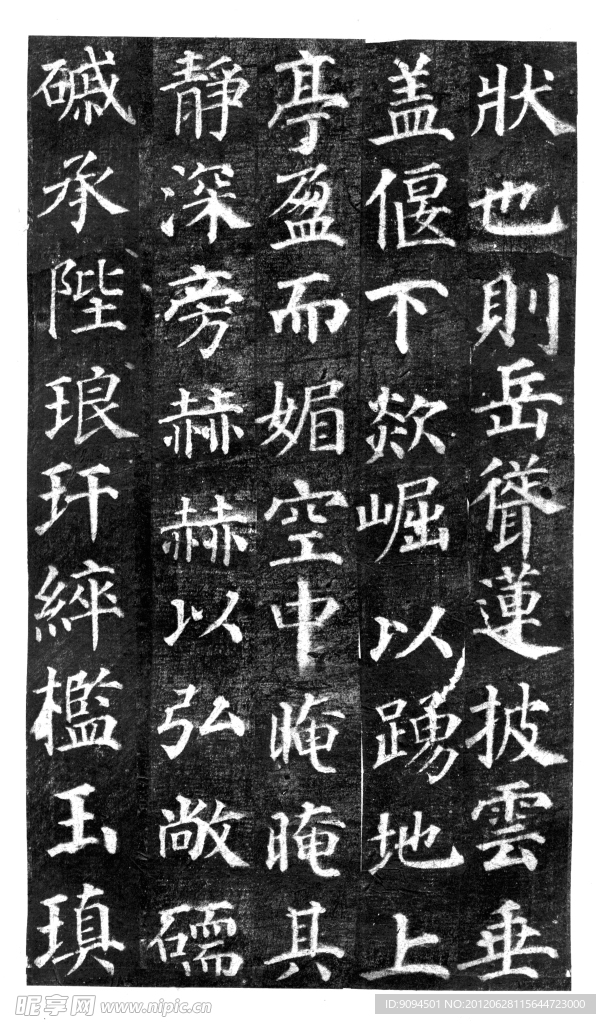 狀也則岳聳蓮披雲垂
盖偃下欻崛以踴地上
亭盈而媚空中晻晻其
靜深旁赫赫以弘敞礝
磩承陛琅玕綷檻玉瑱
昵享网 www.nipic.cn
ID:9094501 NO:20120628115644723000